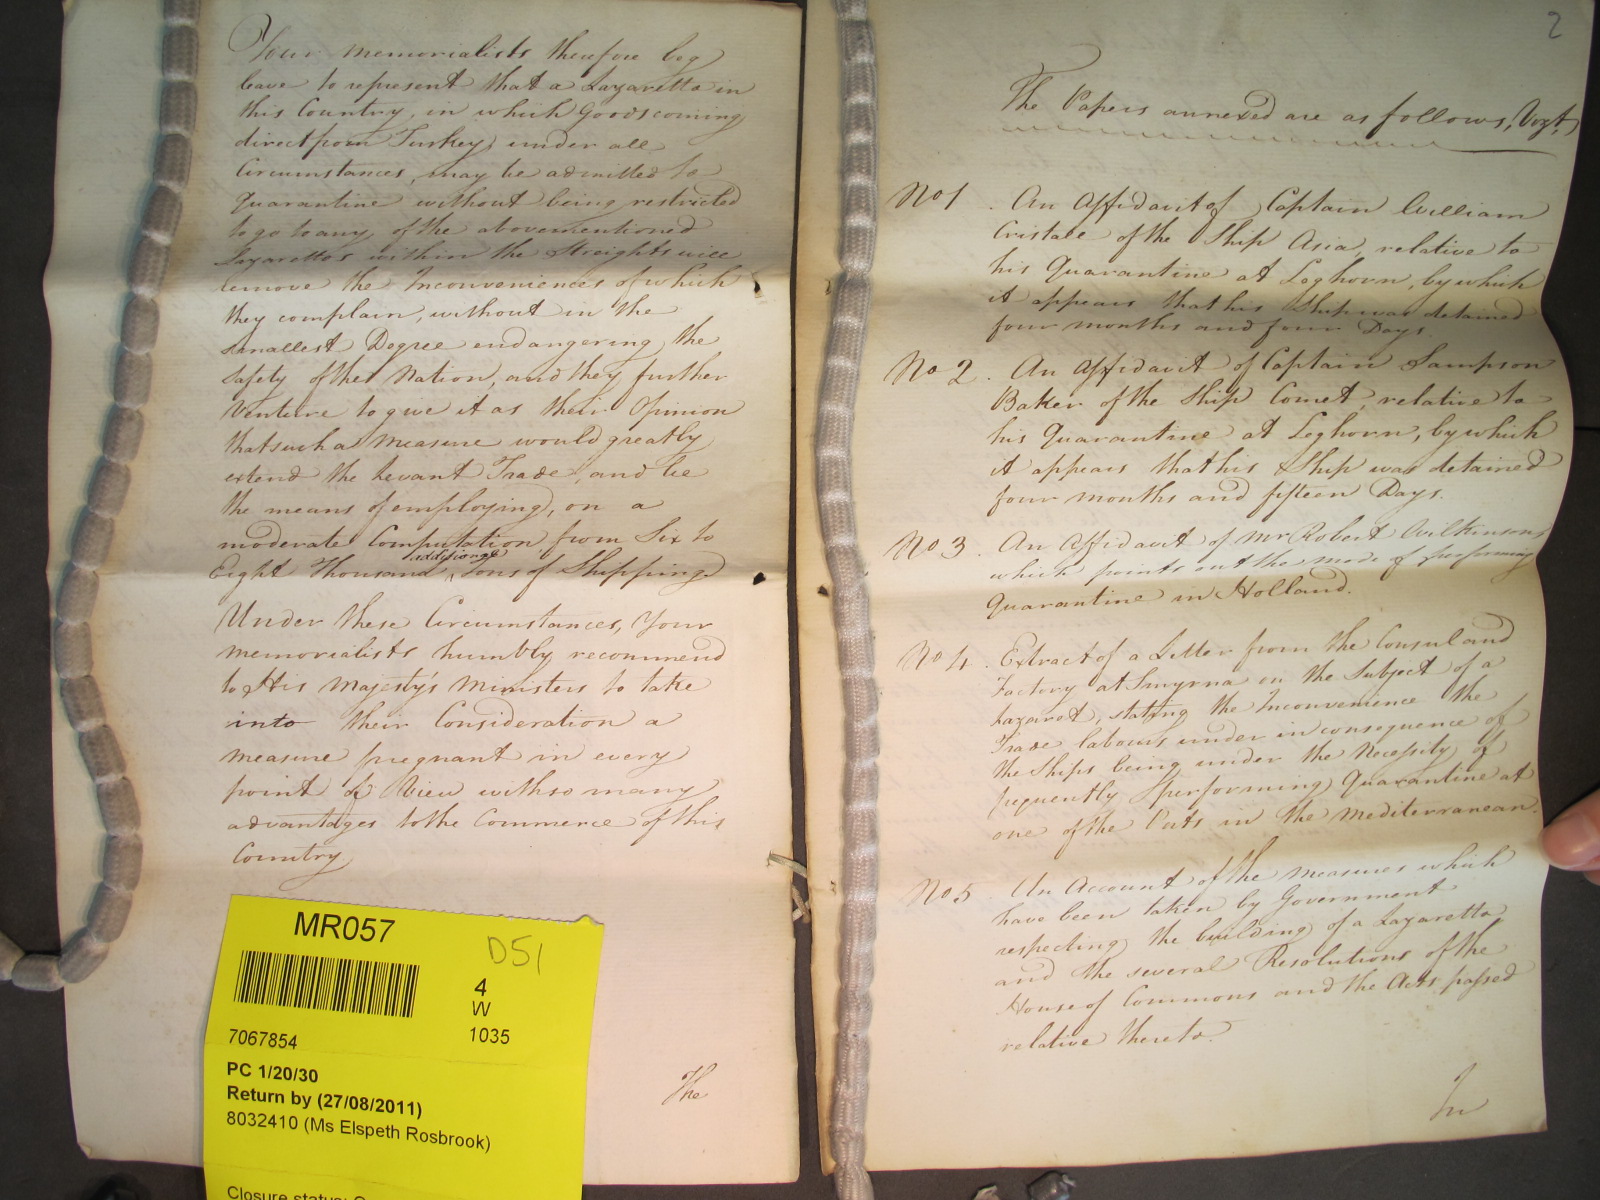 Your memorialists therefore beg
leave to represent that a Lazaretto in
this Country, in which Goods coming
direct from Turkey, under all
Circumstances, may be admitted to
Quarantine without being restricted
to go to any of the abovementioned
Lazarettos within the Streights will
remove the Inconveniences of which
they complain, without in the
smallest Degree endangering the
safety of the Nation, and they further
venture to give it as their Opinion
that such a measure would greatly
extend the Levant Trade, and be
the means of employing, on a
moderate Computation from Six to
additional
Eight Thousand Tons of Shipping
Under these Circumstances, Your
memorialists humbly recommend
to His Majesty's Ministers to take
into their Consideration a
measure pregnant in every
point of View with so many
advantages to the Commerce of this
Country
The
MR057
D51
4
W
7067854
1035
PC 1/20/30
Return by (27/08/2011)
8032410 (Ms Elspeth Rosbrook)
Closure status:
2
The Papers annexed are as follows, Vizt.
No 1. An Affidavit of Captain William
Cristall of the Ship Asia, relative to
his Quarantine at Leghorn, by which
it appears that his Ship was detained
four months and four Days.
No 2. An Affidavit of Captain Sampson
Baker of the Ship Comet, relative to
his Quarantine at Leghorn, by which
it appears that his Ship was detained
four months and fifteen Days.
No 3. An Affidavit of Mr Robert Wilkinson,
which points out the mode of performing
Quarantine in Holland.
No 4. Extract of a Letter from the Consul and
Factory at Smyrna on the Subject of a
Lazaret, stating the Inconvenience the
Trade labours under in consequence of
the Ships being under the Necessity of
frequently performing Quarantine at
one of the Ports in the Mediterranean.
No 5. An Account of the measures which
have been taken by Government
respecting the building of a Lazaretto,
and the several Resolutions of the
House of Commons and the Acts passed
relative thereto.
In